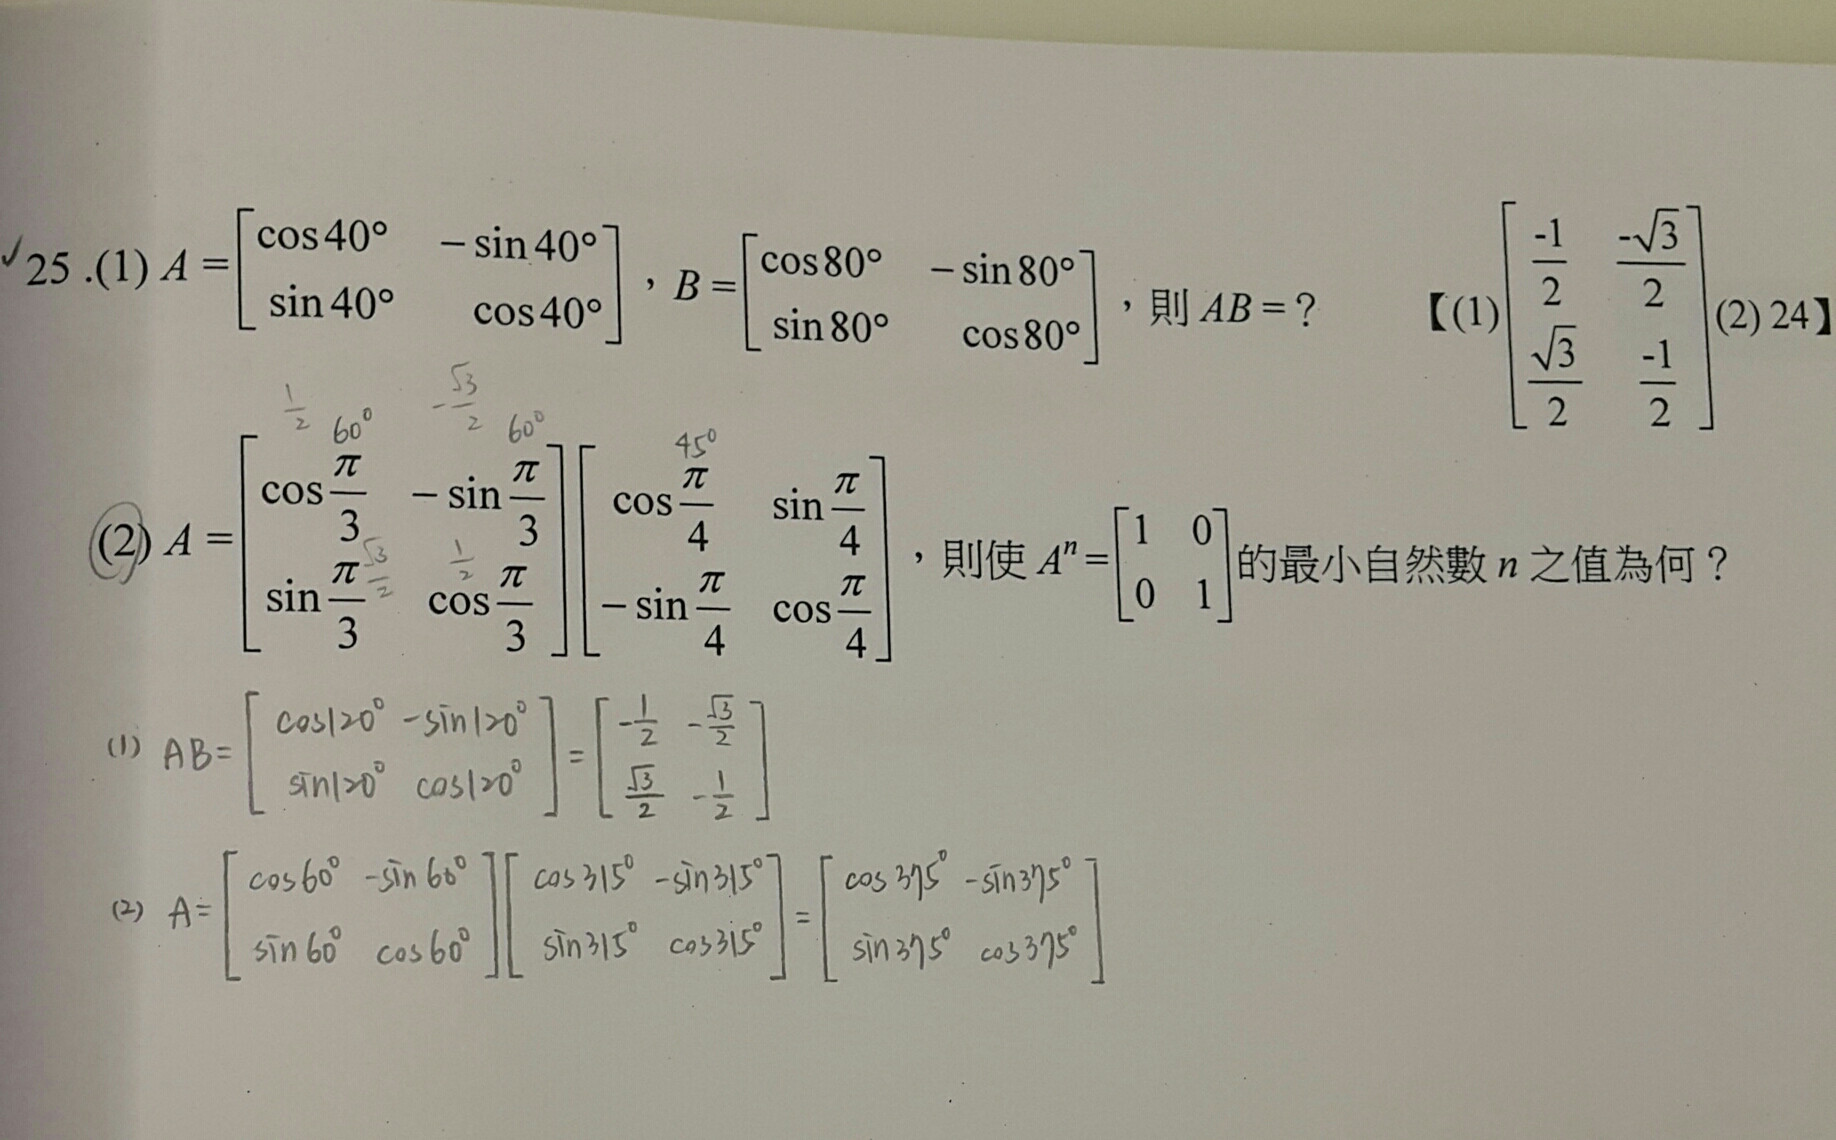 ✓25.(1) A = [cos40° −sin40° ; sin40° cos40°]，B = [cos80° −sin80° ; sin80° cos80°]，則 AB = ？ 【(1) [-1/2 -√3/2 ; √3/2 -1/2] (2) 24】
1/2 60° -√3/2 60° 45°
(2) A = [cos π/3 −sin π/3 ; sin π/3 cos π/3] [cos π/4 sin π/4 ; −sin π/4 cos π/4]，則使 Aⁿ = [1 0 ; 0 1] 的最小自然數 n 之值為何？
√3/2 1/2
(1) AB = [cos120° -sin120° ; sin120° cos120°] = [-1/2 -√3/2 ; √3/2 -1/2]
(2) A = [cos60° -sin60° ; sin60° cos60°] [cos315° -sin315° ; sin315° cos315°] = [cos375° -sin375° ; sin375° cos375°]